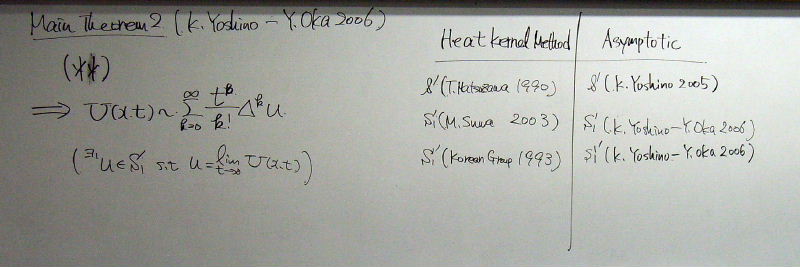 Main Theorem 2 (K. Yoshino - Y. Oka 2006)
(**)
⇒ U(x,t) ~ ∑_{k=0}^{∞} t^k/k! Δ^k u
(∃1 u ∈ S1' s.t u = lim_{t→0} U(x,t))
Heat kernel Method | Asymptotic
S' (T. Matsuzawa 1990) | S' (K. Yoshino 2005)
S1' (M. Suwa 2003) | S1' (K. Yoshino - Y. Oka 2006)
S1^1' (Korean Group 1993) | S1^1' (K. Yoshino - Y. Oka 2006)